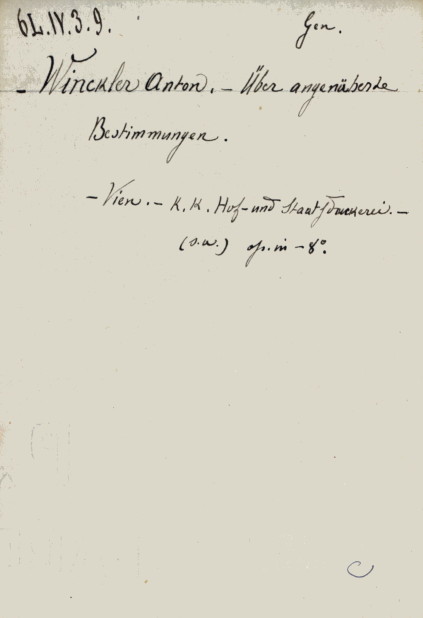 6L.IV.3.9. Gen.
- Winckler Anton. - Über angenäherte
Bestimmungen.
- Vien. - K. K. Hof- und Staatsdruckerei. -
(s.a.) op. in - 8°.